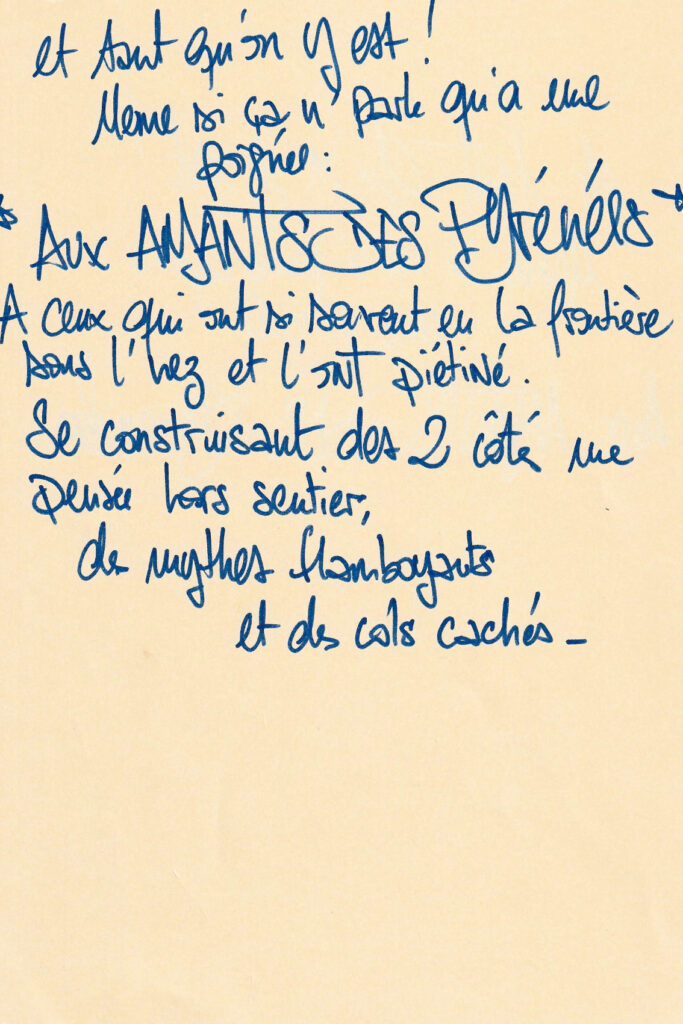 et tant qu'on y est !
Meme si ça n' parle qu'a une
poignée :
* Aux AMANTS DES Pyrénées *
A ceux qui ont si souvent eu la frontière
sous l' nez et l'ont piétiné.
Se construisant des 2 côtés une
pensée hors sentier,
des mythes flamboyants
et des cols cachés _